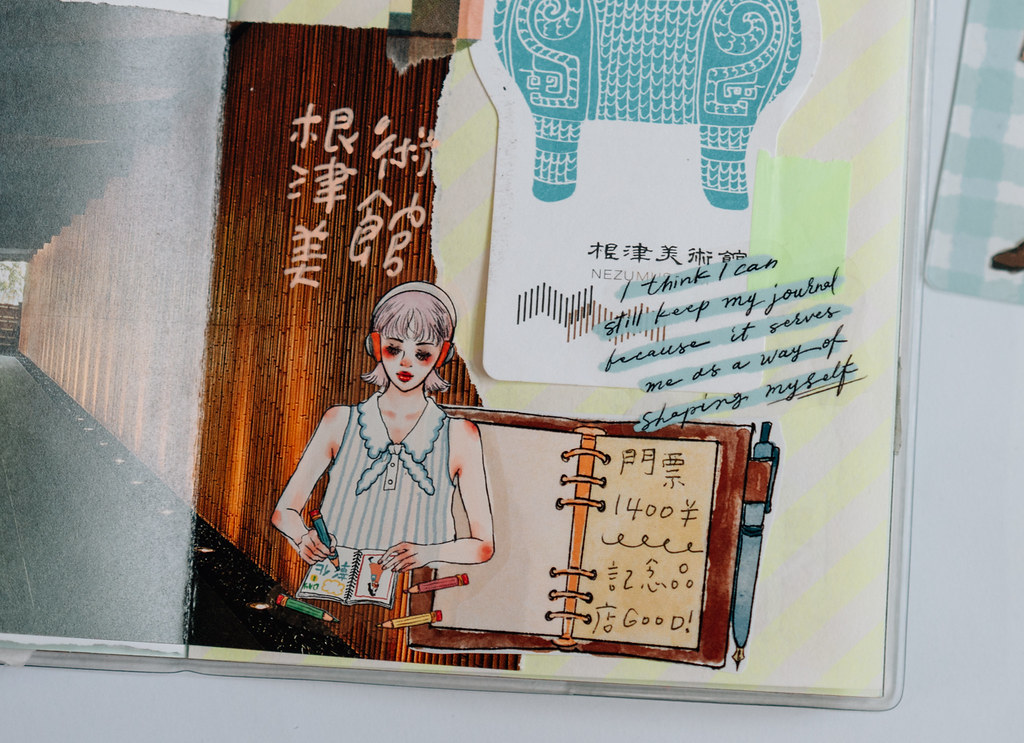 根津美
術館
根津美術館
NEZUMU
I think I can
still keep my journal
because it serves
me as a way of
Shaping myself
門票
1400¥
記念品
店GOOD!